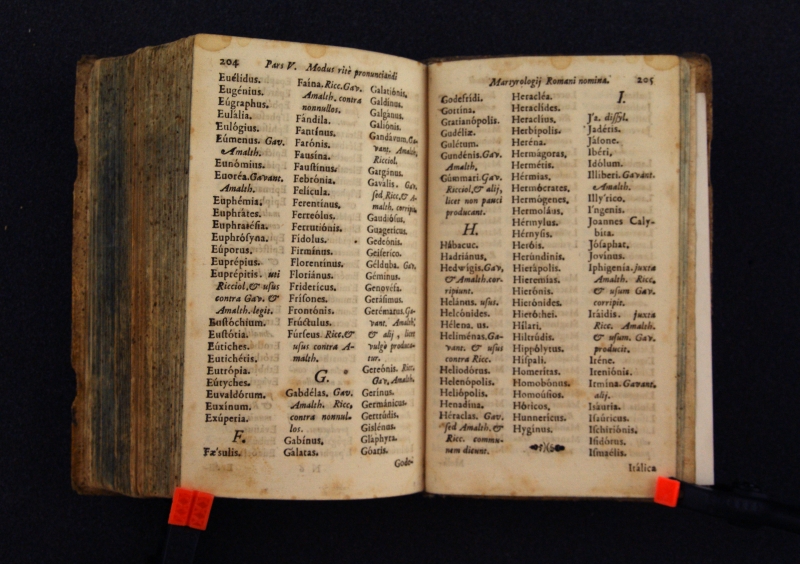 204 Pars V. Modus ritè pronunciandi
Euélidus.
Eugénius.
Eúgraphus.
Eulàlia.
Eulógius.
Eúmenus. Gav.
Amalth.
Eunómius.
Euoréa. Gavant.
Amalth.
Euphémia.
Euphràtes.
Euphrósyna.
Eúporus.
Euprépius.
Euprépitis. uti
Ricciol. & usus
contra Gav. &
Amalth. legis.
Eustóchium.
Eustótia.
Eútiches.
Eutichétis.
Eutrópia.
Eútyches.
Euvaldórum.
Euxinum.
Exúperia.
F.
Fæ'sulis.
Faina. Ricc. Gav.
Amalth. contra
nonnullos.
Fándila.
Fantínus.
Farónis.
Fausína.
Faustínus.
Febrónia.
Felícula.
Ferentínus.
Ferreólus.
Ferrutiónis.
Fidolus.
Firmínus.
Florentínus.
Floriánus.
Fridericus.
Frisones.
Frontónis.
Frúctulus.
Fúrseus. Ricc. &
usus contra A-
malth.
G.
Gabdélas. Gav.
Amalth. Ricc.
contra nonnul-
los.
Gabínus.
Gàlatas.
Galatiónis.
Galdinus.
Galgànus.
Galiónis.
Gandàvum. Ga-
vant. Amalth.
Ricciol.
Garginus.
Gavalis. Gav.
sed Ricc. & A-
malth. corripiu.
Gaudiósus.
Guagericus.
Gedeónis.
Geiserico.
Gélduba. Gav.
Géminus.
Genovéfa.
Geràsimus.
Gerémarus. Ga-
vant. Amalth.
& alij, licèt
vulgò produca-
tur.
Gereónis. Ricc.
Gav. Amalth.
Gerinus.
Germànicus.
Gertrúdis.
Gislénus.
Glàphyra.
Góatis.
Godo-
Martyrologij Romani nomina. 205
Godefridi.
Gottina.
Gratianópolis.
Gudéliæ.
Gulétum.
Gundénis. Gav.
Amalth.
Gúmmari. Gav.
Ricciol. & alij,
licet non pauci
producant.
H.
Hábacuc.
Hadriánus.
Hedwígis. Gav.
& Amalth. cor-
ripiunt.
Helánus. usus.
Helcónides.
Hélena, us.
Heliménas. Ga-
vant. & usus
contra Ricc.
Heliodórus.
Helenópolis.
Heliópolis.
Henadina.
Héraclas. Gav.
sed Amalth. &
Ricc. commu-
nem dicunt.
Heracléa.
Heraclídes.
Heraclíus.
Herbípolis.
Heréna.
Hermàgoras.
Hermétis.
Hérmias.
Hermócrates.
Hermógenes.
Hermoláus.
Hérmylus.
Hérnysis.
Heróis.
Herùndinis.
Hieràpolis.
Hieremias.
Hierónis.
Hierónides.
Hieróthei.
Hílari.
Hiltrúdis.
Hippólytus.
Hispali.
Homeritas.
Homobónus.
Homoúsios.
Hóricos.
Hunnericus.
Hyginus.
I.
J'a. dissyl.
Jadéris.
Jásone.
Ibéri.
Idólum.
Illiberi. Gavant.
Amalth.
Illy'rico.
I'ngenis.
Joannes Caly-
bita.
Jósaphat.
Jovinus.
Iphigenía. juxta
Amalth. Ricc.
& usum Gav.
corripit.
Iráidis. juxta
Ricc. Amalth.
& usum. Gav.
producit.
Iréne.
Ireniónis.
Irmina. Gavant.
alij.
Isàuria.
Isaúricus.
Ischiriónis.
Isidórus.
Ismaélis.
Itálica